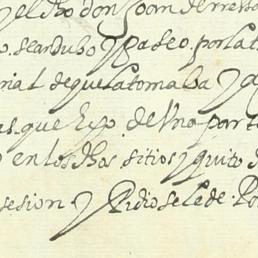 y el dho don Joan de
se andubo y paseo por la
de que la tomaba y
que hizo de Una parte
en los dhos sitios y quito
sesion y Pidio se la de